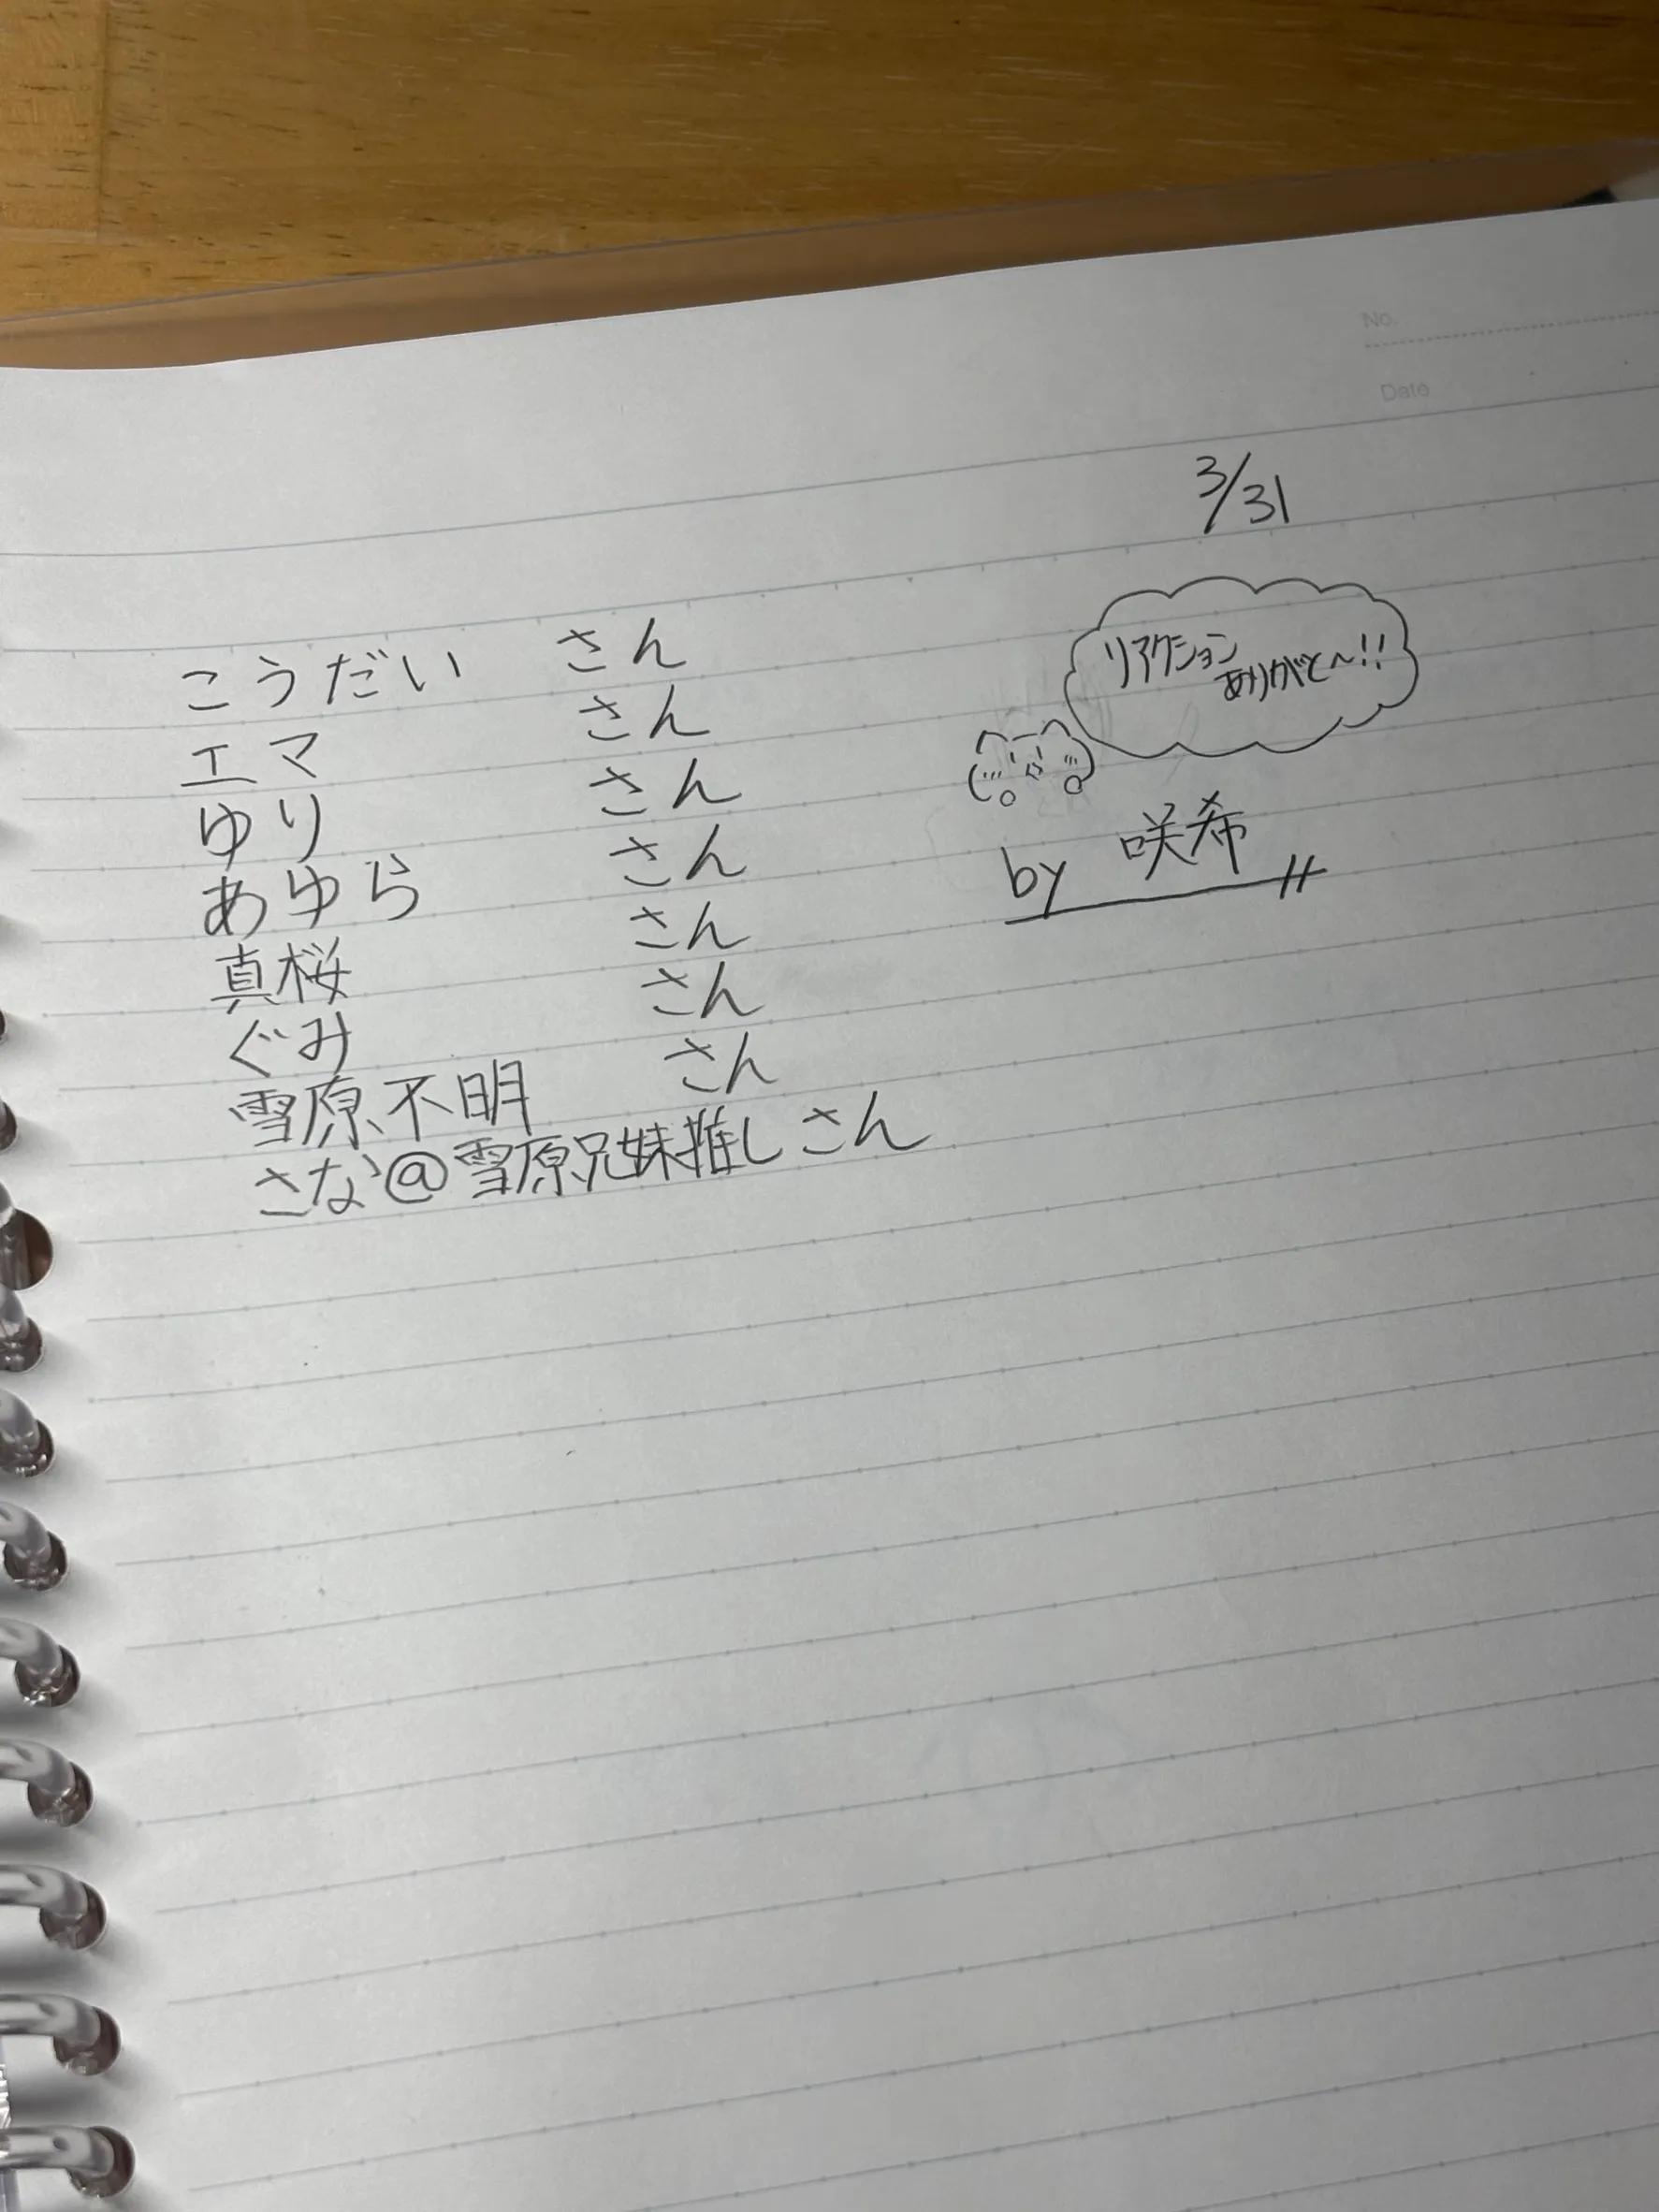 No.
Date
3/31
こうだい さん
エマ さん
ゆり さん
あゆら さん
真桜 さん
ぐみ さん
雪原不明 さん
さな@雪原兄妹推し さん
リアクション
ありがと〜!!
by 咲希